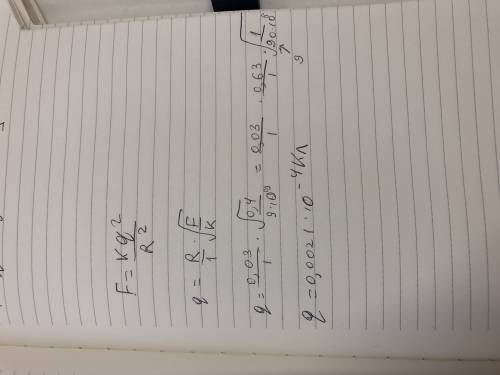 F = Kq² / R²
q = R/1 · √(F/K)
q = 0,03/1 · √(0,4 / 9·10⁹) = 0,03/1 · 0,63/1 · √(1 / 90·10⁸)
9
q = 0,0021·10⁻⁴ Кл